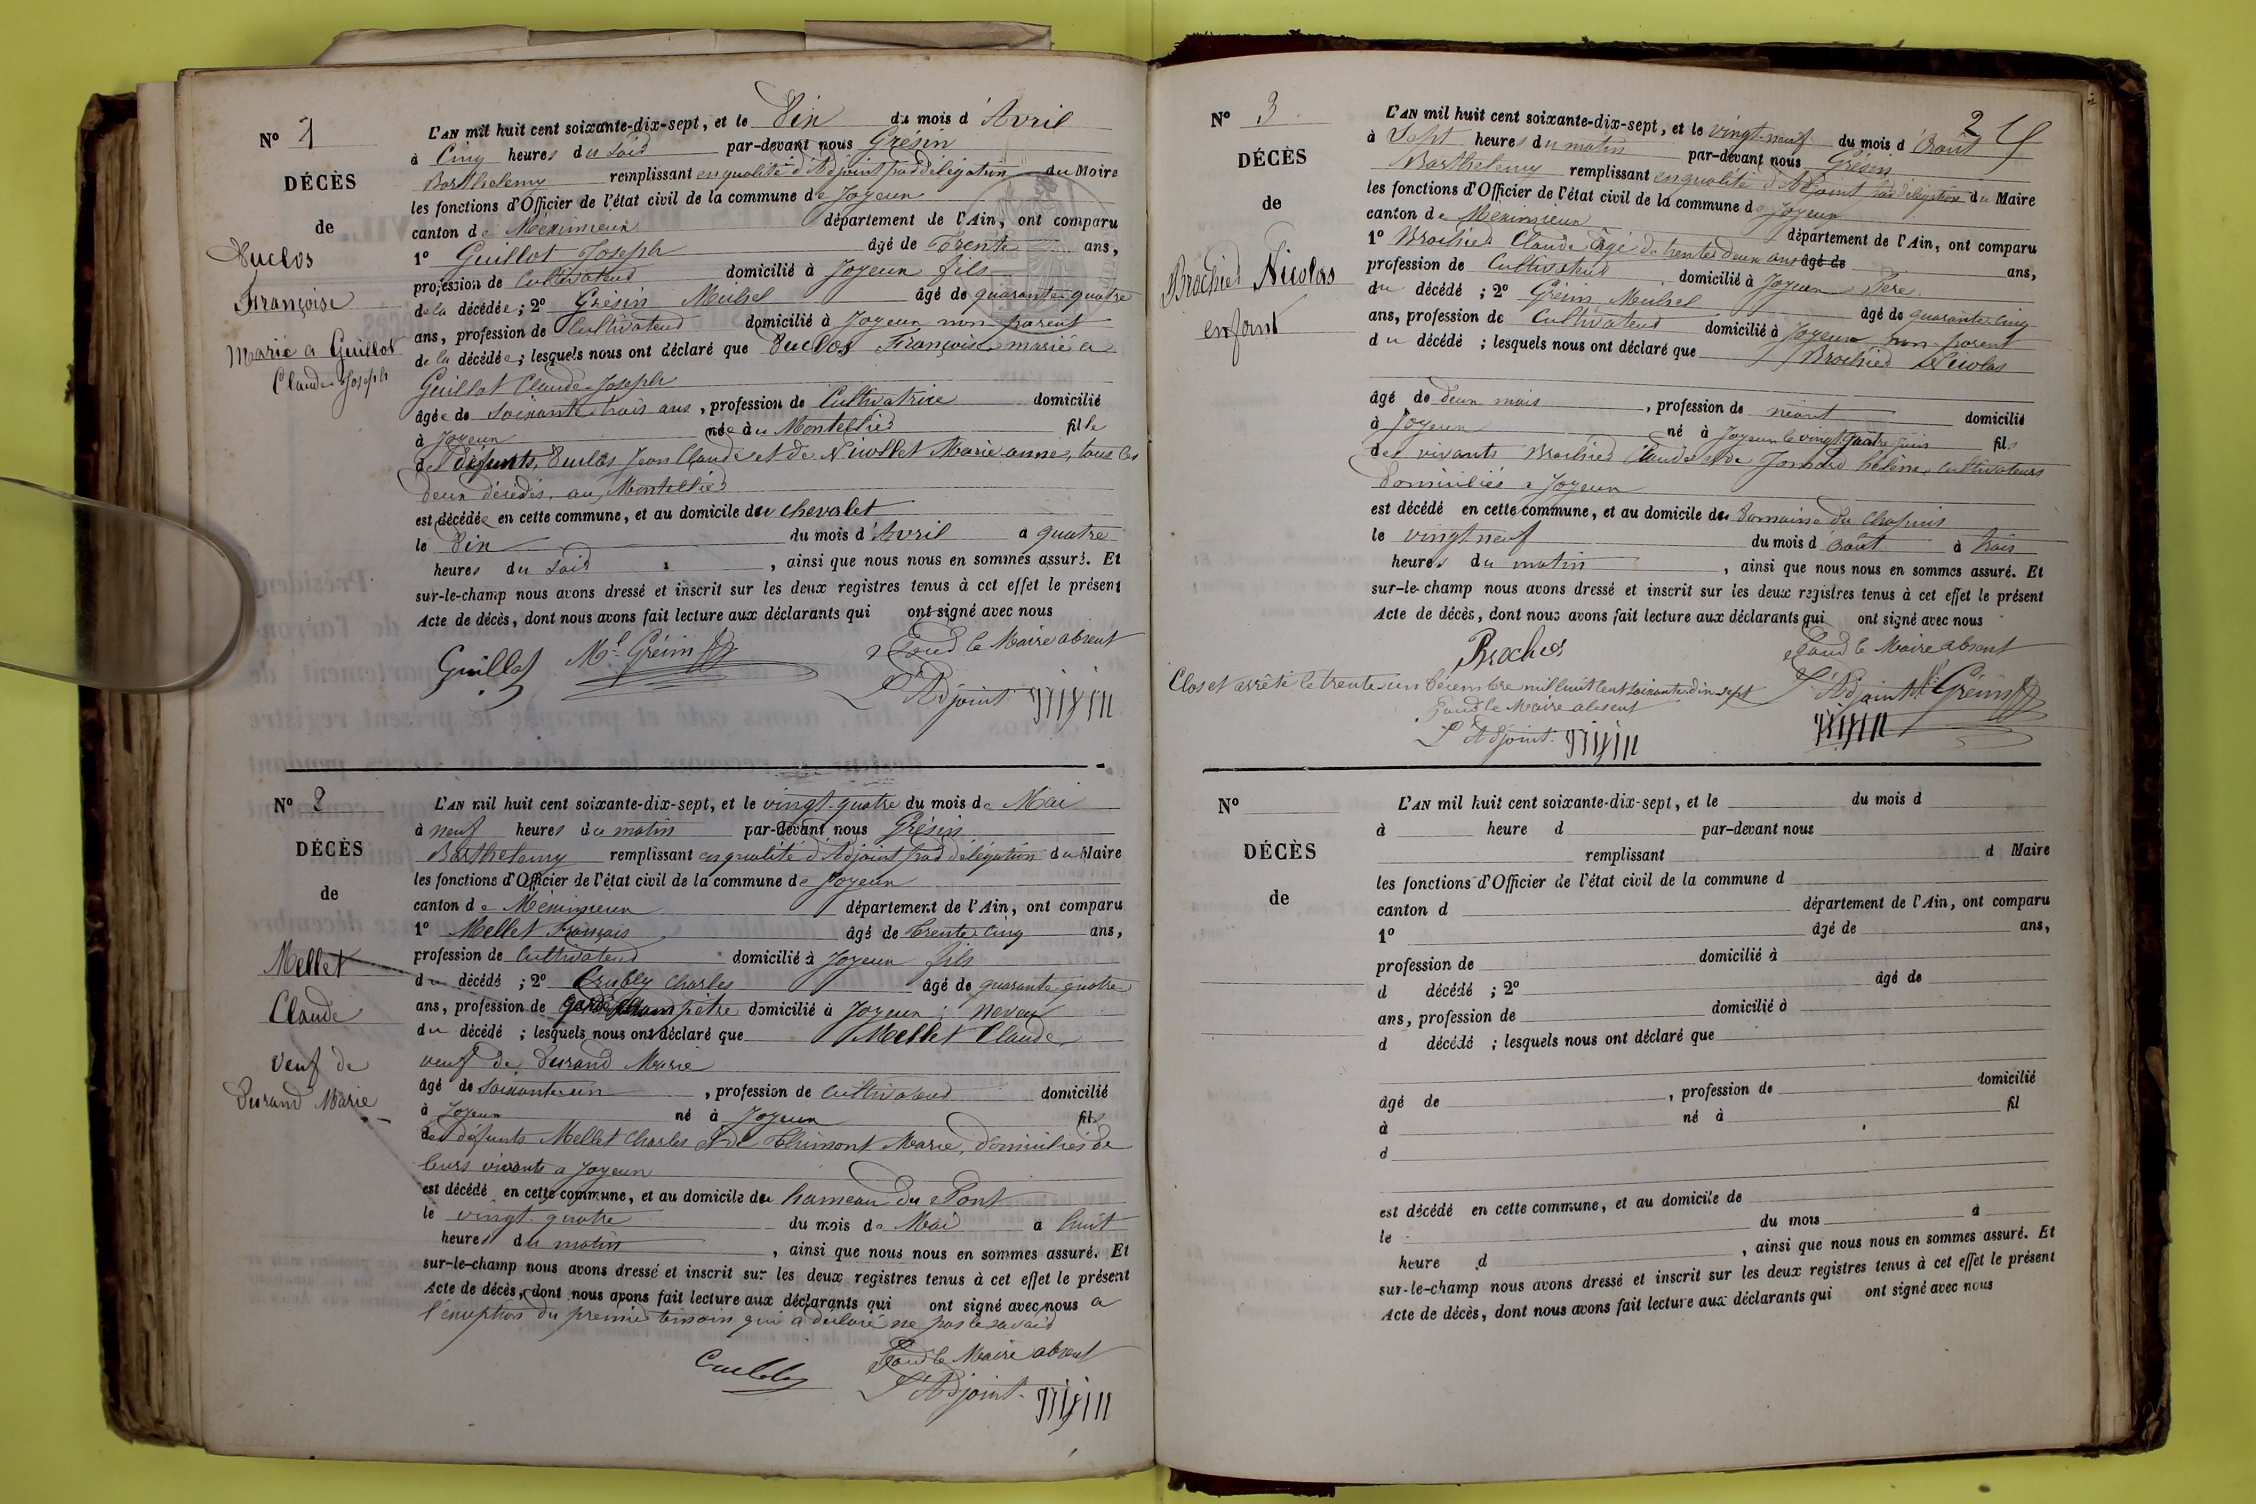 N° 1
DÉCÈS
de
Duclos
Françoise
Mariée a Guillot
Claude Joseph
L'AN mil huit cent soixante-dix-sept, et le Dix du mois d'Avril
à Cinq heures du soir par-devant nous Grésin
Barthelemy remplissant en qualité d'Adjoint par délégation du Maire
les fonctions d'Officier de l'état civil de la commune de Joyeux
canton de Méximieux département de l'Ain, ont comparu
1° Guillot Joseph âgé de Trente ans,
profession de Cultivateur domicilié à Joyeux fils
de la décédée; 2° Grésin Michel âgé de quarante quatre
ans, profession de Cultivateur domicilié à Joyeux non parent
de la décédée; lesquels nous ont déclaré que Duclos Françoise mariée a
Guillot Claude Joseph
âgée de soixante trois ans, profession de Cultivatrice domicilié
à Joyeux née au Montellier fille
des défunts, Duclos Jean Claude et de Nicollet Marie anne, tous les
deux décédés, au Montellier
est décédée en cette commune, et au domicile du chevalet
le Dix du mois d'Avril a quatre
heures du soir, ainsi que nous nous en sommes assuré. Et
sur-le-champ nous avons dressé et inscrit sur les deux registres tenus à cet effet le présent
Acte de décès, dont nous avons fait lecture aux déclarants qui ont signé avec nous
Guillot Mel Grésin Pour le Maire absent
L'Adjoint Grésin
N° 2
DÉCÈS
de
Mellet
Claude
veuf de
Durand Marie
L'AN mil huit cent soixante-dix-sept, et le vingt-quatre du mois de Mai
à neuf heures du matin par-devant nous Grésin
Barthelemy remplissant en qualité d'Adjoint par délégation du Maire
les fonctions d'Officier de l'état civil de la commune de Joyeux
canton de Méximieux département de l'Ain, ont comparu
1° Mellet François âgé de trente cinq ans,
profession de Cultivateur domicilié à Joyeux fils
du décédé; 2° Charles âgé de quarante quatre
ans, profession de garde champêtre domicilié à Joyeux neveu
du décédé; lesquels nous ont déclaré que Mellet Claude
veuf de Durand Marie
âgé de soixante un, profession de cultivateur domicilié
à Joyeux né à Joyeux fils
des défunts Mellet Charles et de Thimont Marie, domiciliés de
leurs vivants a Joyeux
est décédé en cette commune, et au domicile du hameau du Pont
le vingt quatre du mois de Mai a huit
heures du matin, ainsi que nous nous en sommes assuré. Et
sur-le-champ nous avons dressé et inscrit sur les deux registres tenus à cet effet le présent
Acte de décès, dont nous avons fait lecture aux déclarants qui ont signé avec nous a
l'exception du premier témoin qui a déclaré ne pas le savoir
Pour le Maire absent
L'Adjoint Grésin
2
N° 3
DÉCÈS
de
Brochier Nicolas
enfant
L'AN mil huit cent soixante-dix-sept, et le vingt-neuf du mois d'Août
à Sept heures du matin par-devant nous Grésin
Barthelemy remplissant en qualité d'Adjoint par délégation du Maire
les fonctions d'Officier de l'état civil de la commune de Joyeux
canton de Méximieux département de l'Ain, ont comparu
1° Brochier Claude âgé de trente deux ans âgé de ans,
profession de Cultivateur domicilié à Joyeux Père
du décédé; 2° Grésin Michel âgé de quarante-cinq
ans, profession de Cultivateur domicilié à Joyeux non parent
du décédé; lesquels nous ont déclaré que Brochier Nicolas
âgé de deux mois, profession de néant domicilié
à Joyeux né à Joyeux le vingt quatre juin fils
des vivants Brochier Claude et de Hélène, cultivateurs
Domiciliés a Joyeux
est décédé en cette commune, et au domicile du Domaine du Chapuis
le vingt neuf du mois d'août à trois
heures du matin, ainsi que nous nous en sommes assuré. Et
sur-le-champ nous avons dressé et inscrit sur les deux registres tenus à cet effet le présent
Acte de décès, dont nous avons fait lecture aux déclarants qui ont signé avec nous
Brochier Pour le Maire absent
L'Adjoint Mel Grésin
Grésin
Clos et arrêté le trente-un Décembre mil huit cent soixante-dix-sept
Pour le Maire absent
L'Adjoint Grésin
N°
DÉCÈS
de
L'AN mil huit cent soixante-dix-sept, et le du mois d
à heure d par-devant nous
remplissant d Maire
les fonctions d'Officier de l'état civil de la commune d
canton d département de l'Ain, ont comparu
1° âgé de ans,
profession de domicilié à
d décédé; 2° âgé de
ans, profession de domicilié à
d décédé; lesquels nous ont déclaré que
âgé de, profession de domicilié
à né à fil
d
est décédé en cette commune, et au domicile de
le du mois à
heure d, ainsi que nous nous en sommes assuré. Et
sur-le-champ nous avons dressé et inscrit sur les deux registres tenus à cet effet le présent
Acte de décès, dont nous avons fait lecture aux déclarants qui ont signé avec nous